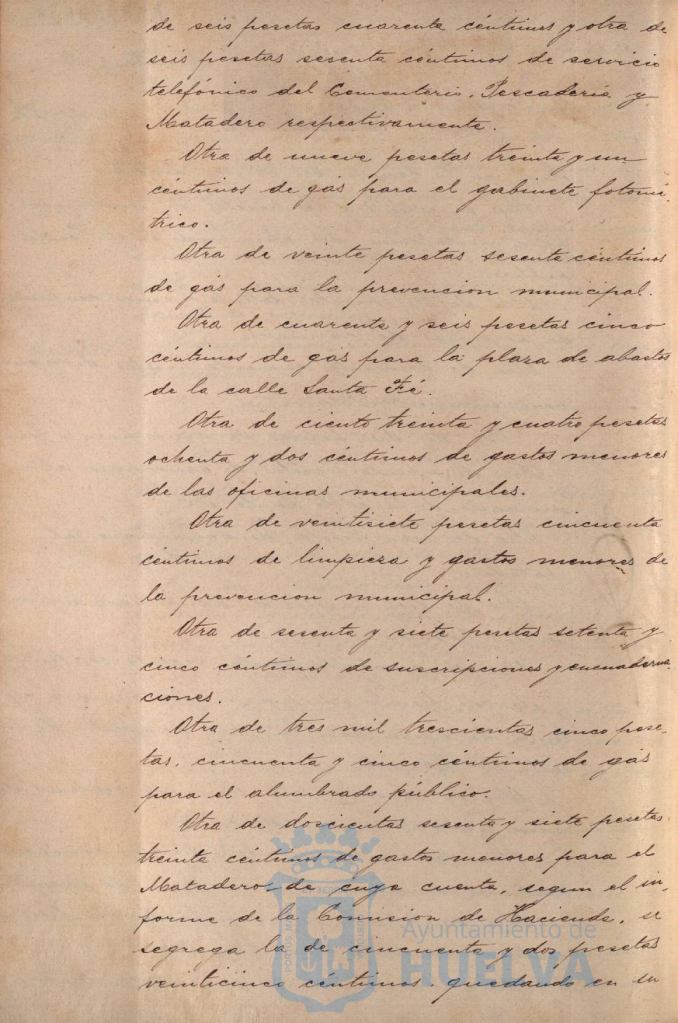 de seis pesetas cuarenta céntimos y otra de
seis pesetas sesenta céntimos de servicio
telefónico del Cementerio, Pescadería y
Matadero respectivamente.
Otra de nueve pesetas treinta y un
céntimos de gás para el gabinete fotomé-
trico.
Otra de veinte pesetas sesenta céntimos
de gás para la prevencion municipal.
Otra de cuarenta y seis pesetas cinco
céntimos de gás para la plaza de abastos
de la calle Santa Fé.
Otra de ciento treinta y cuatro pesetas
ochenta y dos céntimos de gastos menores
de las oficinas municipales.
Otra de veintisiete pesetas cincuenta
céntimos de limpieza y gastos menores de
la prevencion municipal.
Otra de sesenta y siete pesetas setenta y
cinco céntimos de suscripciones y encuaderna-
ciones.
Otra de tres mil trescientas cinco pese-
tas, cincuenta y cinco céntimos de gás
para el alumbrado público.
Otra de doscientas sesenta y siete pesetas
treinta céntimos de gastos menores para el
Matadero, de cuya cuenta, segun el in-
forme de la Comision de Hacienda, se
segrega la de cincuenta y dos pesetas
veinticinco céntimos, quedando en su
Ayuntamiento de
HUELVA